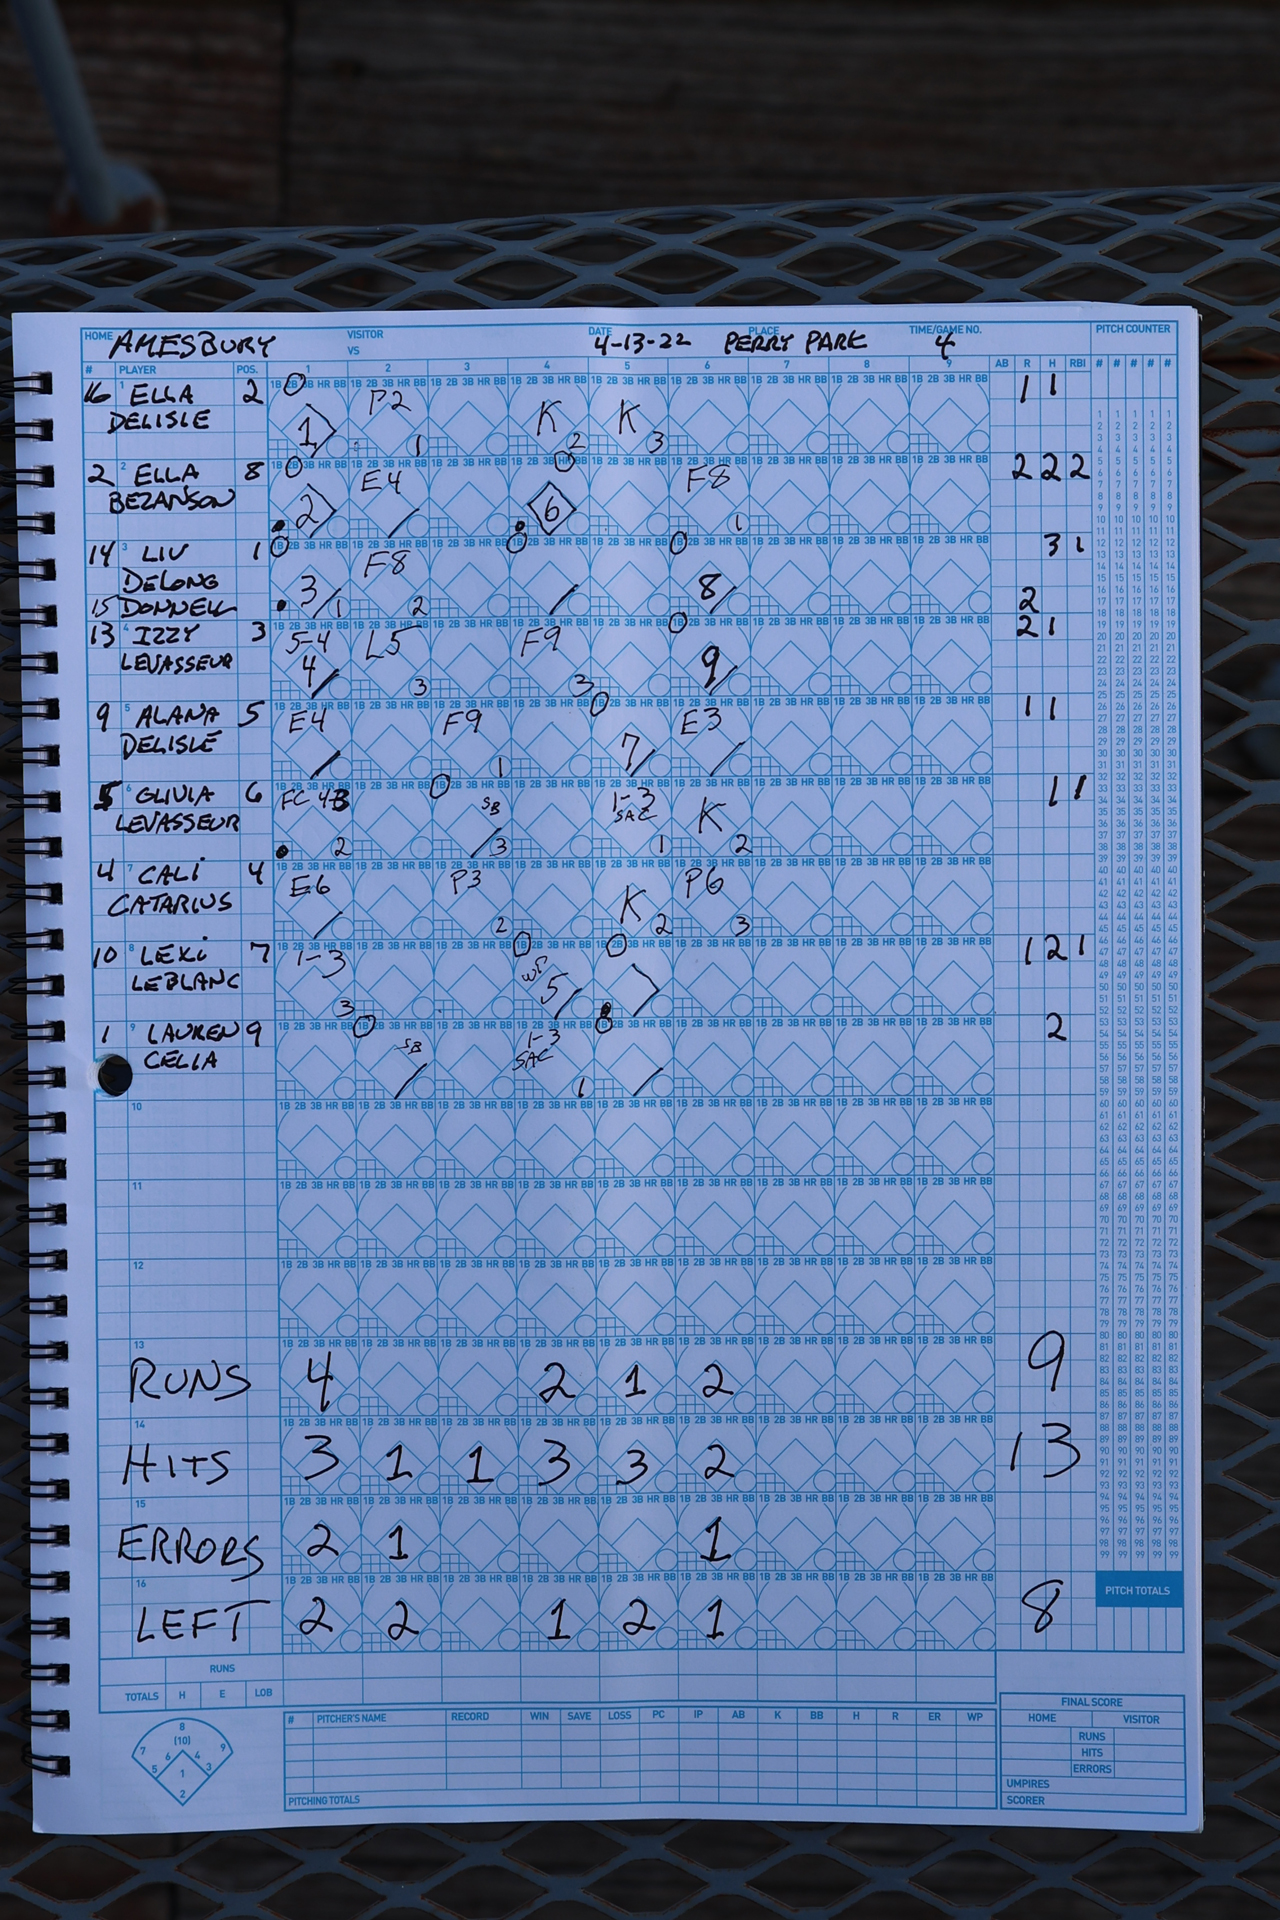 HOME AMESBURY VISITOR VS DATE 4-13-22 PLACE PERRY PARK TIME/GAME NO. 4 PITCH COUNTER
# PLAYER POS. 1 2 3 4 5 6 7 8 9 AB R H RBI # # # # #
16 1 ELLA DELISLE 2 1 P2 1 K 2 K 3 1 1
2 2 ELLA BEZANSON 8 2 E4 6 F8 1 2 2 2
14 3 LIV DELONG 1 3 1 F8 2 8 3 1
15 DONNELL 2
13 4 IZZY LEVASSEUR 3 5-4 4 L5 3 F9 3 9 2 1
9 5 ALANA DELISLE 5 E4 F9 1 7 E3 1 1
5 6 OLIVIA LEVASSEUR 6 FC 4-3 2 SB 3 1-3 SAC 1 K 2 1 1
4 7 CALI CATARIUS 4 E6 P3 2 K 2 P6 3
10 8 LEXI LEBLANC 7 1-3 3 WP 5 1 2 1
1 9 LAUREN CELIA 9 SB 1-3 SAC 1 2
10
11
12
13
RUNS 4 2 1 2 9
14
HITS 3 1 1 3 3 2 13
15
ERRORS 2 1 1
16
LEFT 2 2 1 2 1 8
PITCH TOTALS
RUNS
TOTALS H E LOB
# PITCHER'S NAME RECORD WIN SAVE LOSS PC IP AB K BB H R ER WP
PITCHING TOTALS
FINAL SCORE
HOME VISITOR
RUNS
HITS
ERRORS
UMPIRES
SCORER
8
(10)
7 9
6 4
5 3
1
2